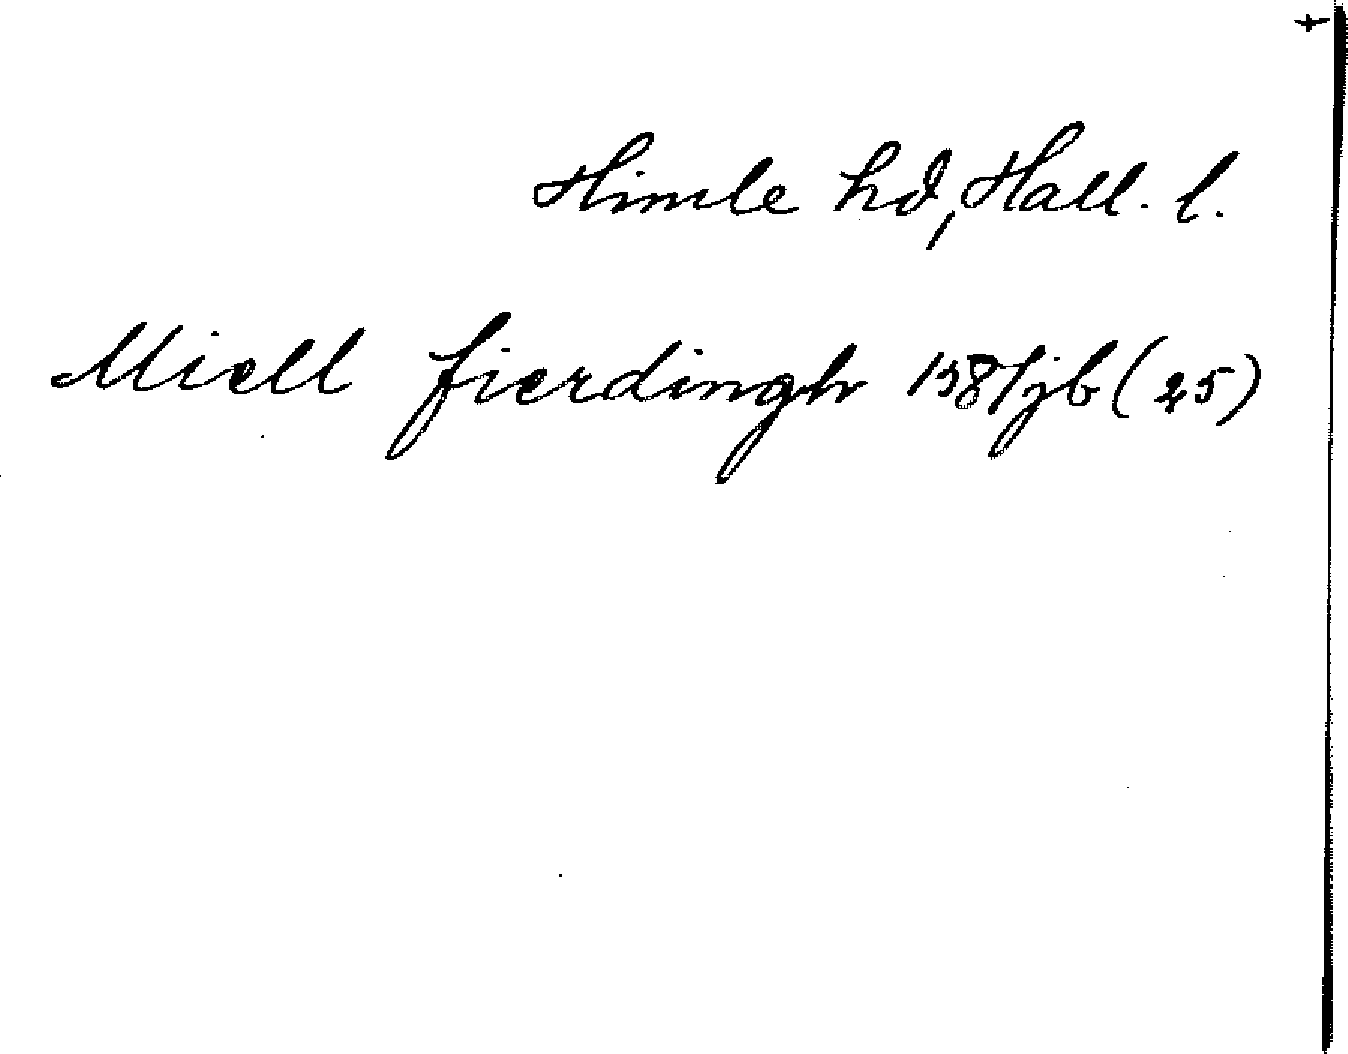 Himle hd, Hall. l.
Miell fierdingh 1587 jb (25)